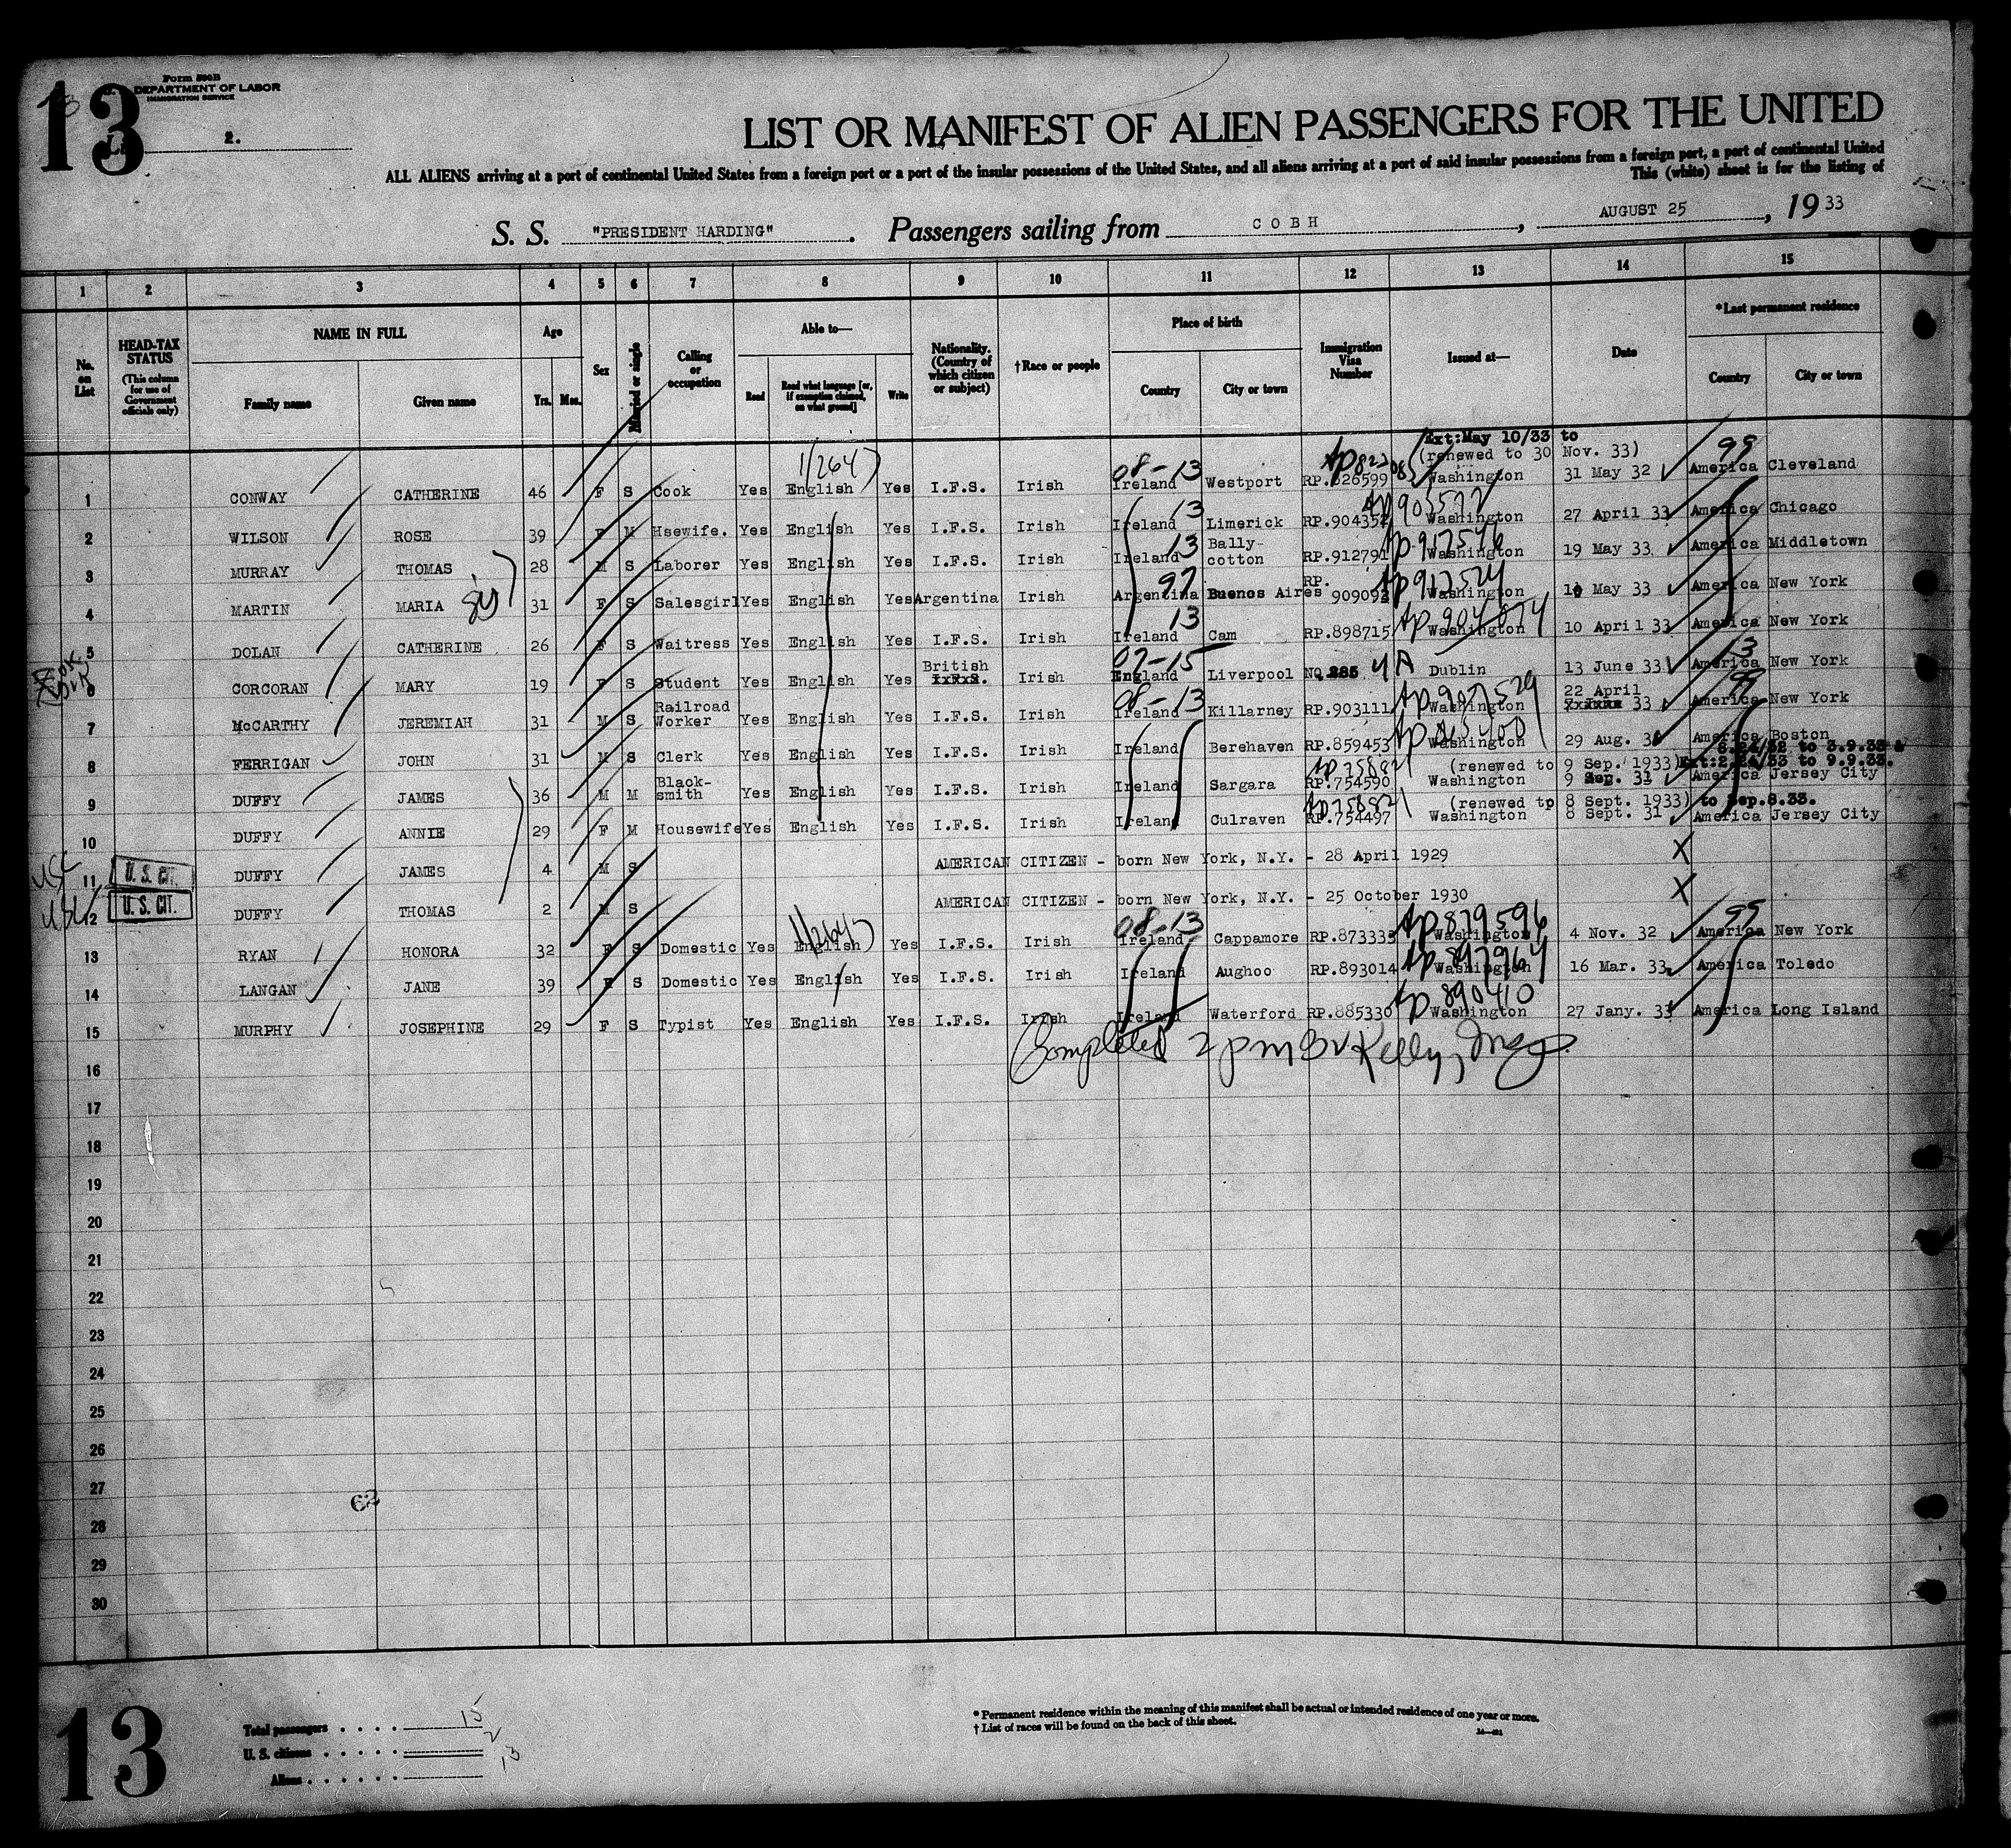 13
Form 500B
DEPARTMENT OF LABOR
IMMIGRATION SERVICE
2.
LIST OR MANIFEST OF ALIEN PASSENGERS FOR THE UNITED
ALL ALIENS arriving at a port of continental United States from a foreign port or a port of the insular possessions of the United States, and all aliens arriving at a port of said insular possessions from a foreign port, a port of continental United
This (white) sheet is for the listing of
S. S. "PRESIDENT HARDING". Passengers sailing from COBH, AUGUST 25, 1933
1 2 3 4 5 6 7 8 9 10 11 12 13 14 15
No. on List
HEAD-TAX STATUS (This column for use of Government officials only)
NAME IN FULL
Family name
Given name
Age
Yrs. Mos.
Sex
Married or single
Calling or occupation
Able to—
Read
Read what language [or, if exemption claimed, on what ground]
Write
Nationality. (Country of which citizen or subject)
†Race or people
Place of birth
Country
City or town
Immigration Visa Number
Issued at—
Date
*Last permanent residence
Country
City or town
Ext:May 10/33 to
(renewed to 30 Nov. 33)
1 CONWAY CATHERINE 46 F S Cook Yes English Yes I.F.S. Irish Ireland Westport Washington 31 May 32 America Cleveland
2 WILSON ROSE 39 F M Hsewife. Yes English Yes I.F.S. Irish Ireland Limerick RP.904352 Washington 27 April 33 America Chicago
3 MURRAY THOMAS 28 M S Laborer Yes English Yes I.F.S. Irish Ireland Bally-cotton RP.912791 Ap 917546 Washington 19 May 33 America Middletown
4 MARTIN MARIA 31 F S Salesgirl Yes English Yes Argentina Irish Argentina Buenos Aires RP. 909093 Ap 917524 Washington May 33 America New York
5 DOLAN CATHERINE 26 F S Waitress Yes English Yes I.F.S. Irish Ireland Cam RP.898715 Ap 904074 Washington 10 April 33 America New York
6 CORCORAN MARY 19 F S Student Yes English Yes British Irish England Liverpool NQ 285 Dublin 13 June 33 America New York
7 McCARTHY JEREMIAH 31 M S Railroad Worker Yes English Yes I.F.S. Irish Ireland Killarney RP.903111 Washington 22 April 33 America New York
8 FERRIGAN JOHN 31 M S Clerk Yes English Yes I.F.S. Irish Ireland Berehaven RP.859453 Washington 29 Aug. America Boston
(renewed to 9 Sep. 1933)
9 DUFFY JAMES 36 M M Black-smith Yes English Yes I.F.S. Irish Ireland Sargara RP.754590 Washington 9 Sep. 31 America Jersey City
(renewed to 8 Sept. 1933) to Sep.8.33.
10 DUFFY ANNIE 29 F M Housewife Yes English Yes I.F.S. Irish Ireland Culraven RP.754497 Washington 8 Sept. 31 America Jersey City
11 U. S. CIT. DUFFY JAMES 4 M S AMERICAN CITIZEN - born New York, N.Y. - 28 April 1929 X
12 U. S. CIT. DUFFY THOMAS 2 M S AMERICAN CITIZEN - born New York, N.Y. - 25 October 1930 X
13 RYAN HONORA 32 F S Domestic Yes English Yes I.F.S. Irish Ireland Cappamore RP.873333 Ap 879596 Washington 4 Nov. 32 America New York
14 LANGAN JANE 39 F S Domestic Yes English Yes I.F.S. Irish Ireland Aughoo RP.893014 Ap 897964 Washington 16 Mar. 33 America Toledo
15 MURPHY JOSEPHINE 29 F S Typist Yes English Yes I.F.S. Irish Ireland Waterford RP.885330 Ap 890410 Washington 27 Jany. 33 America Long Island
Completed 2 pm Kelly, Insp.
16
17
18
19
20
21
22
23
24
25
26
27
28
29
30
62
13
Total passengers . . . . 15
U. S. citizens . . . . . 2
Aliens . . . . . . 13
* Permanent residence within the meaning of this manifest shall be actual or intended residence of one year or more.
† List of races will be found on the back of this sheet.